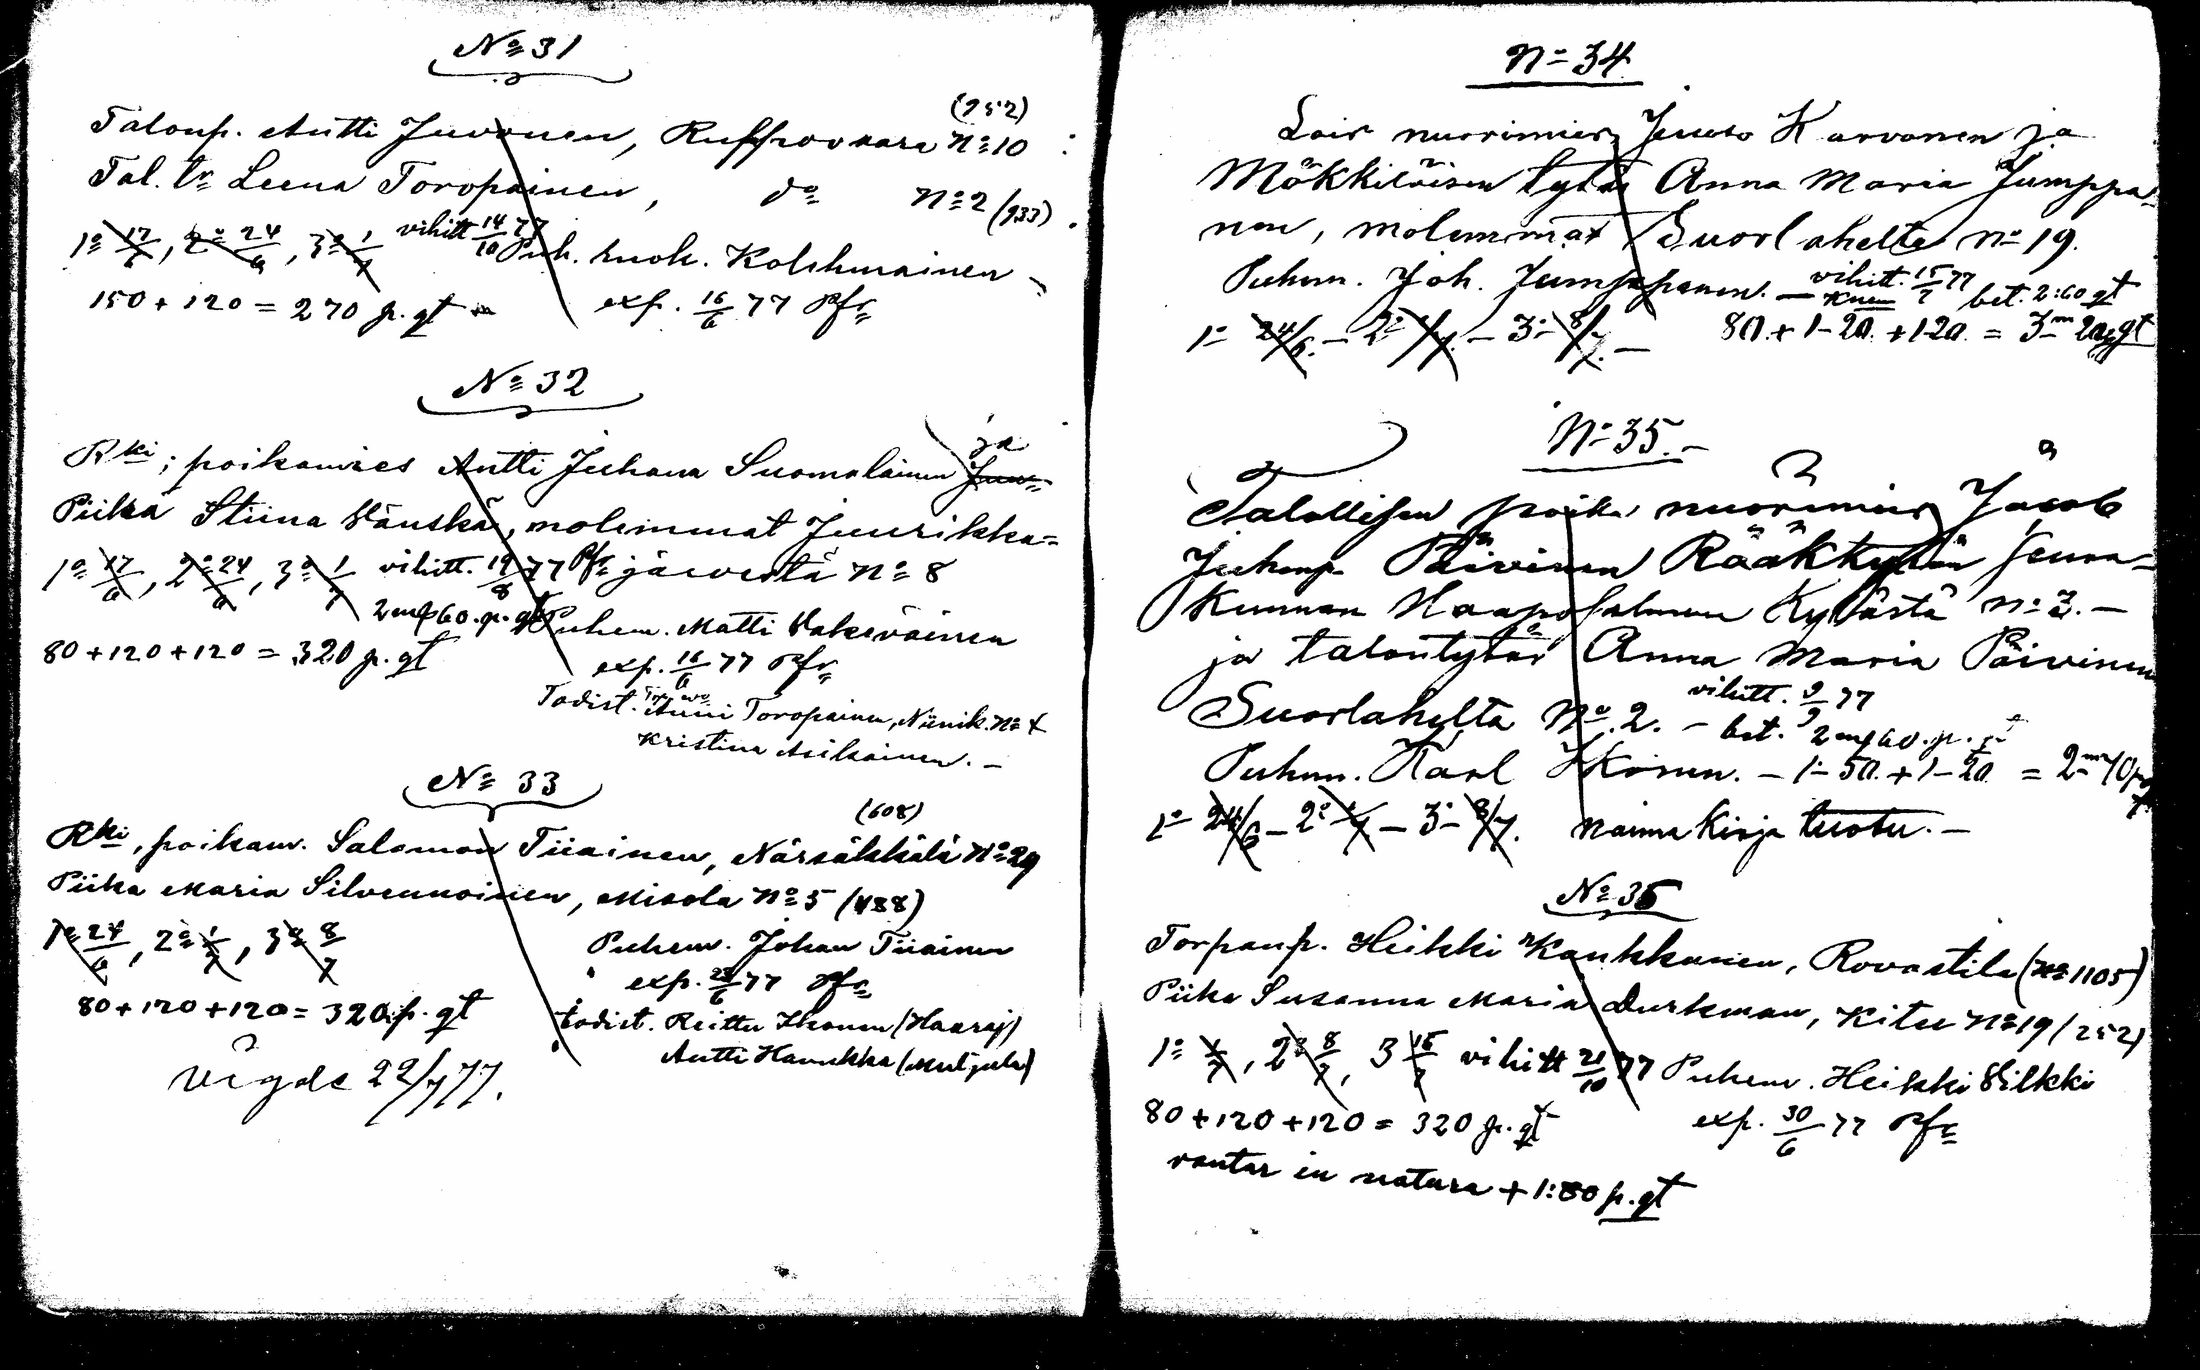 No 31
(252)
Talonp. Antti Juvonen, Ruppovaara No 10
Tal. tr Leena Toropainen, do No 2 (933)
1o 17/6, 2o 24/6, 3o 1/7 vihitt 14/10 77
Puh. huoh. Kolehmainen
150 + 120 = 270 p. gt exp. 16/6 77 Pfr
No 32
Rki; poikamies Antti Juhana Suomalainen ja
Piika Stiina Vänskä, molemmat Juurikka=
1o 17/6, 2o 24/6, 3o 1/7 vihitt. 19/8 77 Pfr järveltä No 8
2 mk 60. p. gt Puhem. Matti Väkeväinen
80 + 120 + 120 = 320 p. gt exp. 16/6 77 Pfr
Todist. Anni Toropainen, Niinik. No 4
Kristina Asikainen. —
No 33
(608)
Rki, poikam. Salomon Tiiainen, Närsäkkälä No 29
Piika Maria Silvennoinen, Misola No 5 (488)
1o 24/6, 2o 1/7, 3o 8/7 Puhem. Johan Tiiainen
exp. 23/6 77 Pfr
80 + 120 + 120 = 320 p. gt todist. Reittu Ikonen (Haaraj)
Antti Hanukka (Muljula)
Vigde 22/7 77.
No 34
Lois nuorimies Juuso Karvonen ja
Mökkiläisen tytär Anna Maria Jumppa-
nen, molemmat Suorlahelta No 19.
Puhm. Joh. Jumppanen. — vihitt. 15/7 77
bet. 2:60 gt
1o 24/6. — 2o 1/7. — 3o 8/7. — 80. + 1-20. + 1-20. = 3 m 20 p gt
No 35. —
Talollisen poika nuorimies Jacob
Juhanp. Päivinen Rääkkylän seura-
kunnan Haaposalmen Kylästä No 3. —
ja talontytär Anna Maria Päivinen
Suorlahelta No 2. — vihitt. 9/9 77
bet. 2 mk 60. p. gt
Puhm. Karl Ikonen. — 1-50. + 1-20 = 2 m 70 p
1o 24/6 — 2o 1/7 — 3o 8/7. naima kirja tuotu. —
No 36
Torpanp. Heikki Kaukkanen, Rovastila (No 1105)
Piika Susanna Maria Durkman, Kitee No 19 (252)
1o 1/7, 2o 8/7, 3 15/7 vihitt 21/10 77 Puhem. Heikki Silkki
80 + 120 + 120 = 320 p. gt exp. 30/6 77 Pfr
vantar in natura + 1:80 p. gt